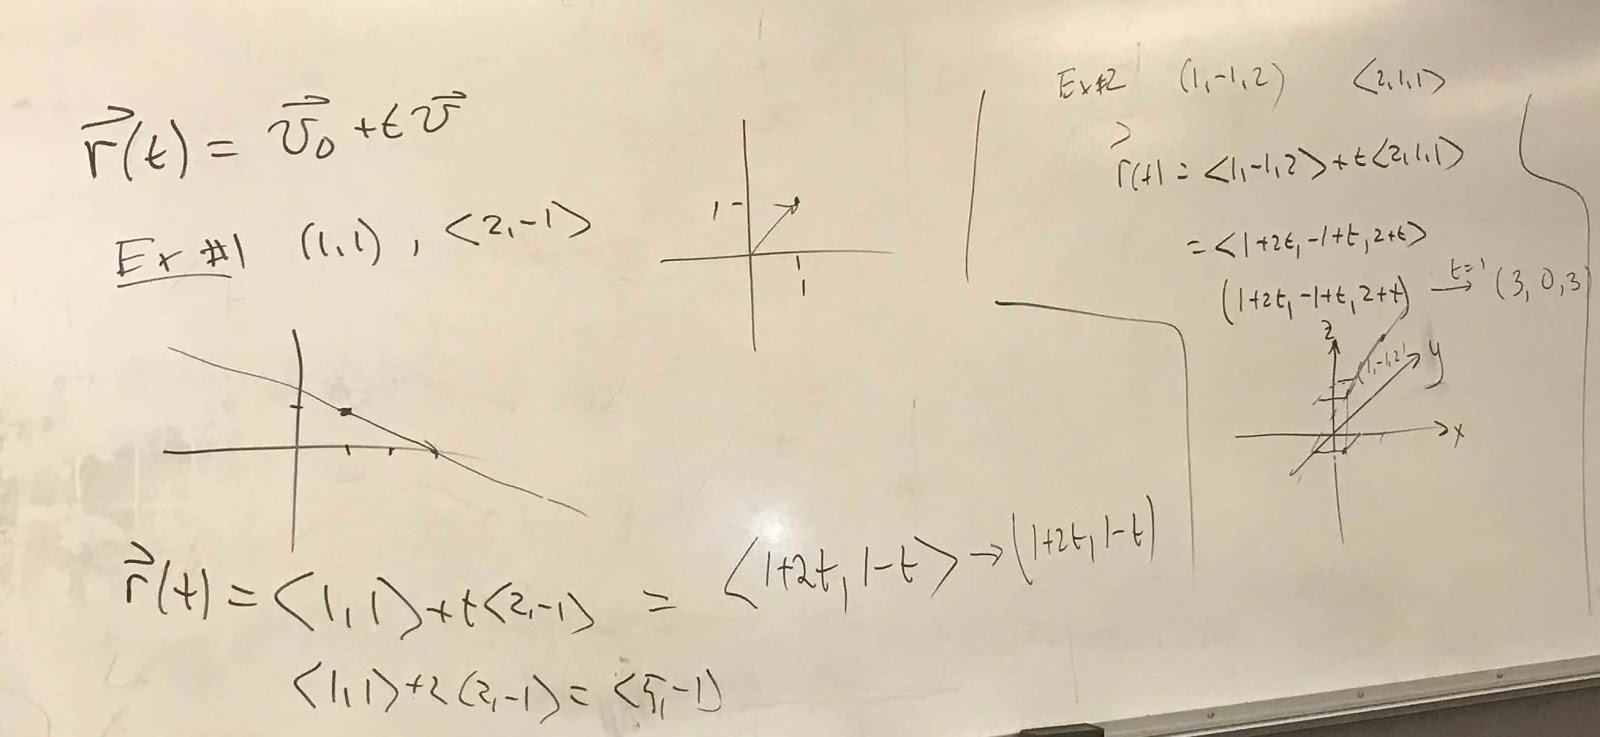 r⃗(t) = v⃗₀ + t v⃗
Ex #1 (1,1), <2,-1>
1
1
r⃗(t) = <1,1> + t<2,-1> = <1+2t, 1-t> → (1+2t, 1-t)
<1,1> + 2<2,-1> = <5,-1>
Ex#2 (1,-1,2) <2,1,1>
r⃗(t) = <1,-1,2> + t<2,1,1>
= <1+2t, -1+t, 2+t>
(1+2t, -1+t, 2+t) t=1 → (3, 0, 3)
z
(1,-1,2)
y
x